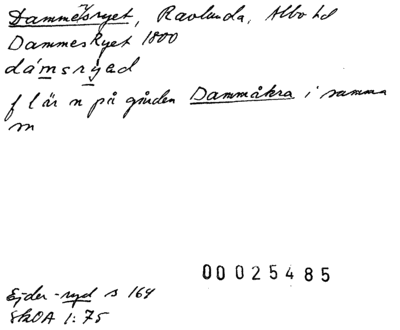 Dammelsryet, Ravlunda, Albo hd
Dammes Ryet 1800
dámsrýed
f l är n på gården Dammåkra i samma
sn
00025485
Ejder -ryd s 164
SkOA 1:75